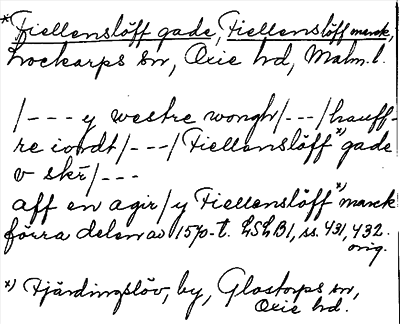 *Fiellenslöff gade, Fiellenslöff marck,
Lockarps sn, Oxie hd, Malm. l.
/--- y westre wongh/---/hauff-
re iordt/---/Fiellenslöff *) gade
v skr̄/---
aff en agir/y Fiellenslöff *) marck
förra delen av 1570-t. LSLB1, ss. 431, 432.
orig.
*) Fjärdingslöv, by, Glostorps sn,
Oxie hd.